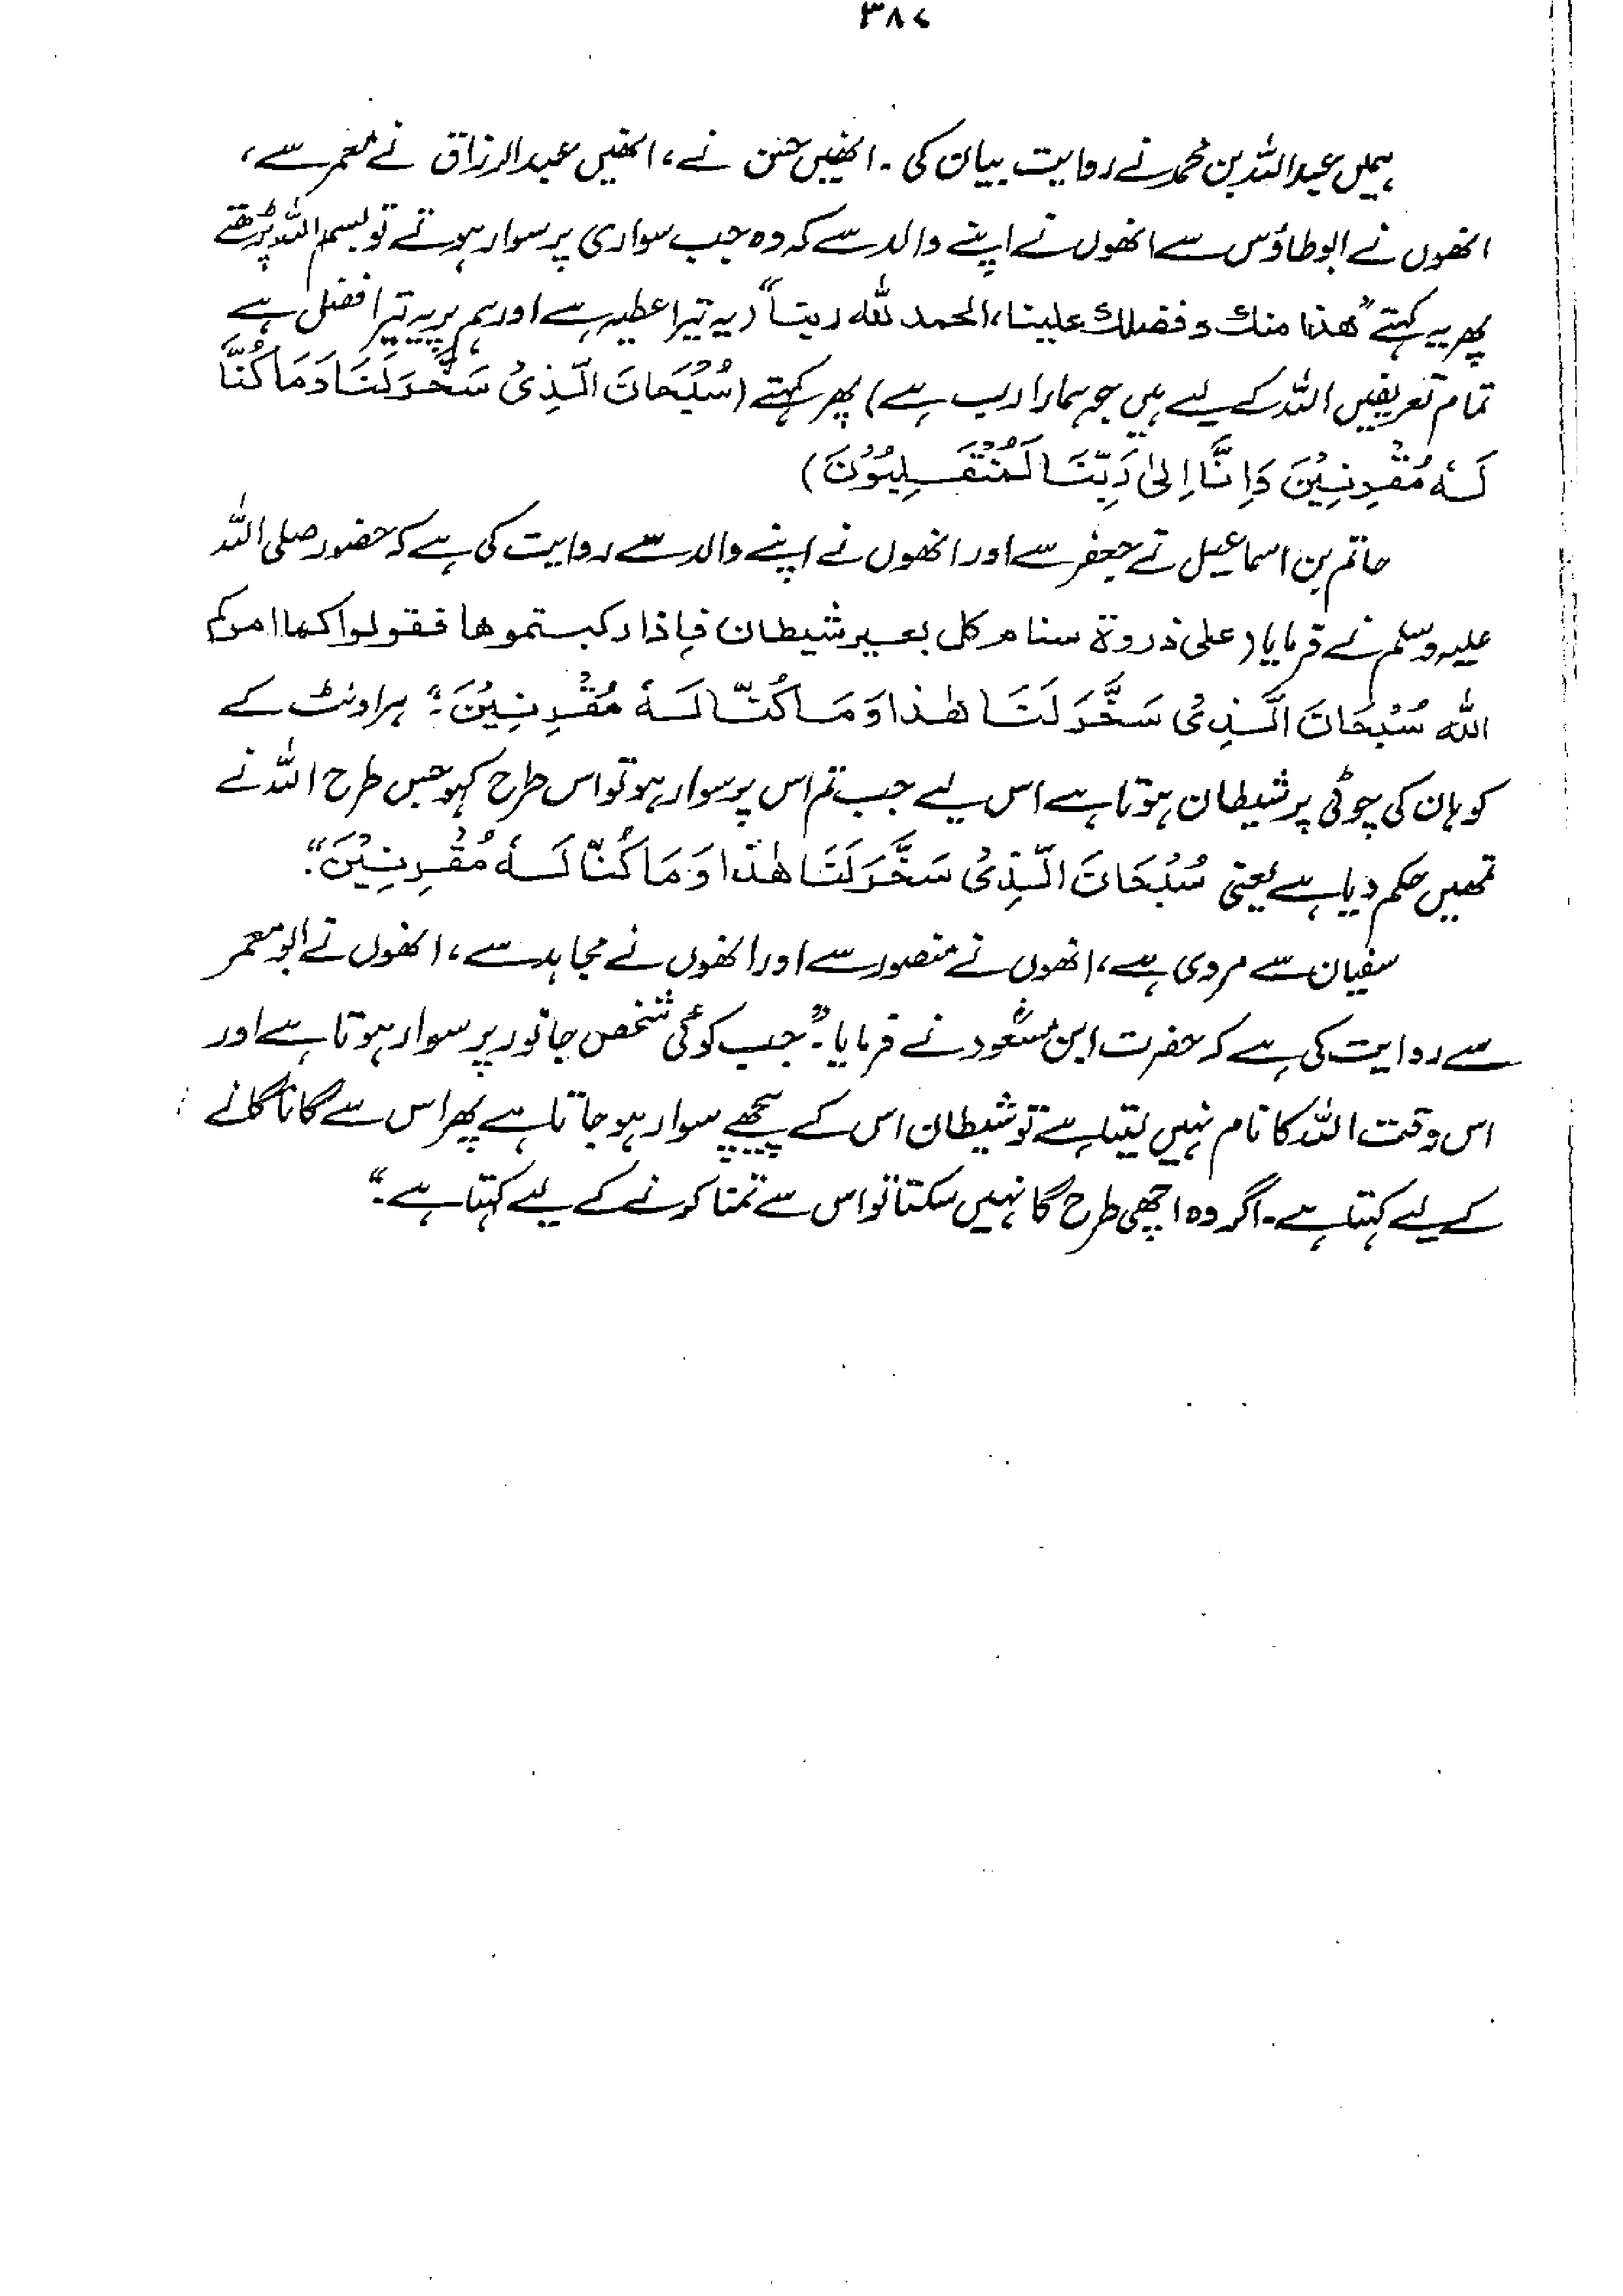 ۳۸۷
ہمیں عبداللہ بن محمد نے روایت بیان کی۔ انھیں حسن نے، انھیں عبدالرزاق نے معمر سے،
انھوں نے ابو طاؤس سے انھوں نے اپنے والد سے کہ وہ جب سواری پر سوار ہوتے تو بسم اللہ پڑھتے
پھر یہ کہتے "ھذا منك و فضلك علینا، الحمد للہ ربنا" (یہ تیرا عطیہ ہے اور ہم پر یہ تیرا فضل ہے
تمام تعریفیں اللہ کے لیے ہیں جو ہمارا رب ہے) پھر کہتے (سُبْحَانَ الَّذِیْ سَخَّرَ لَنَا وَمَا كُنَّا
لَهٗ مُقْرِنِیْنَ وَاِنَّا اِلىٰ رَبِّنَا لَمُنْقَلِبُوْنَ)
حاتم بن اسماعیل نے جعفر سے اور انھوں نے اپنے والد سے روایت کی ہے کہ حضور صلی اللہ
علیہ وسلم نے فرمایا (على ذروة سنام كل بعير شیطان فإذا ركبتموها فقولوا كما امركم
الله سُبْحَانَ الَّذِیْ سَخَّرَ لَنَا هٰذا وَمَا كُنَّا لَهٗ مُقْرِنِیْنَ؛ ہر اونٹ کے
کوہان کی چوٹی پر شیطان ہوتا ہے اس لیے جب تم اس پر سوار ہو تو اس طرح کہو جس طرح اللہ نے
تمھیں حکم دیا ہے یعنی سُبْحَانَ الَّذِیْ سَخَّرَ لَنَا هٰذا وَمَا كُنَّا لَهٗ مُقْرِنِیْنَ"۔
سفیان سے مروی ہے، انھوں نے منصور سے اور انھوں نے مجاہد سے، انھوں نے ابو معمر
سے روایت کی ہے کہ حضرت ابن مسعودؓ نے فرمایا۔ "جب کوئی شخص جانور پر سوار ہوتا ہے اور
اس وقت اللہ کا نام نہیں لیتا ہے تو شیطان اس کے پیچھے سوار ہو جاتا ہے پھر اس سے گانا گانے
کے لیے کہتا ہے۔ اگر وہ اچھی طرح گا نہیں سکتا تو اس سے تمنا کرنے کے لیے کہتا ہے۔"